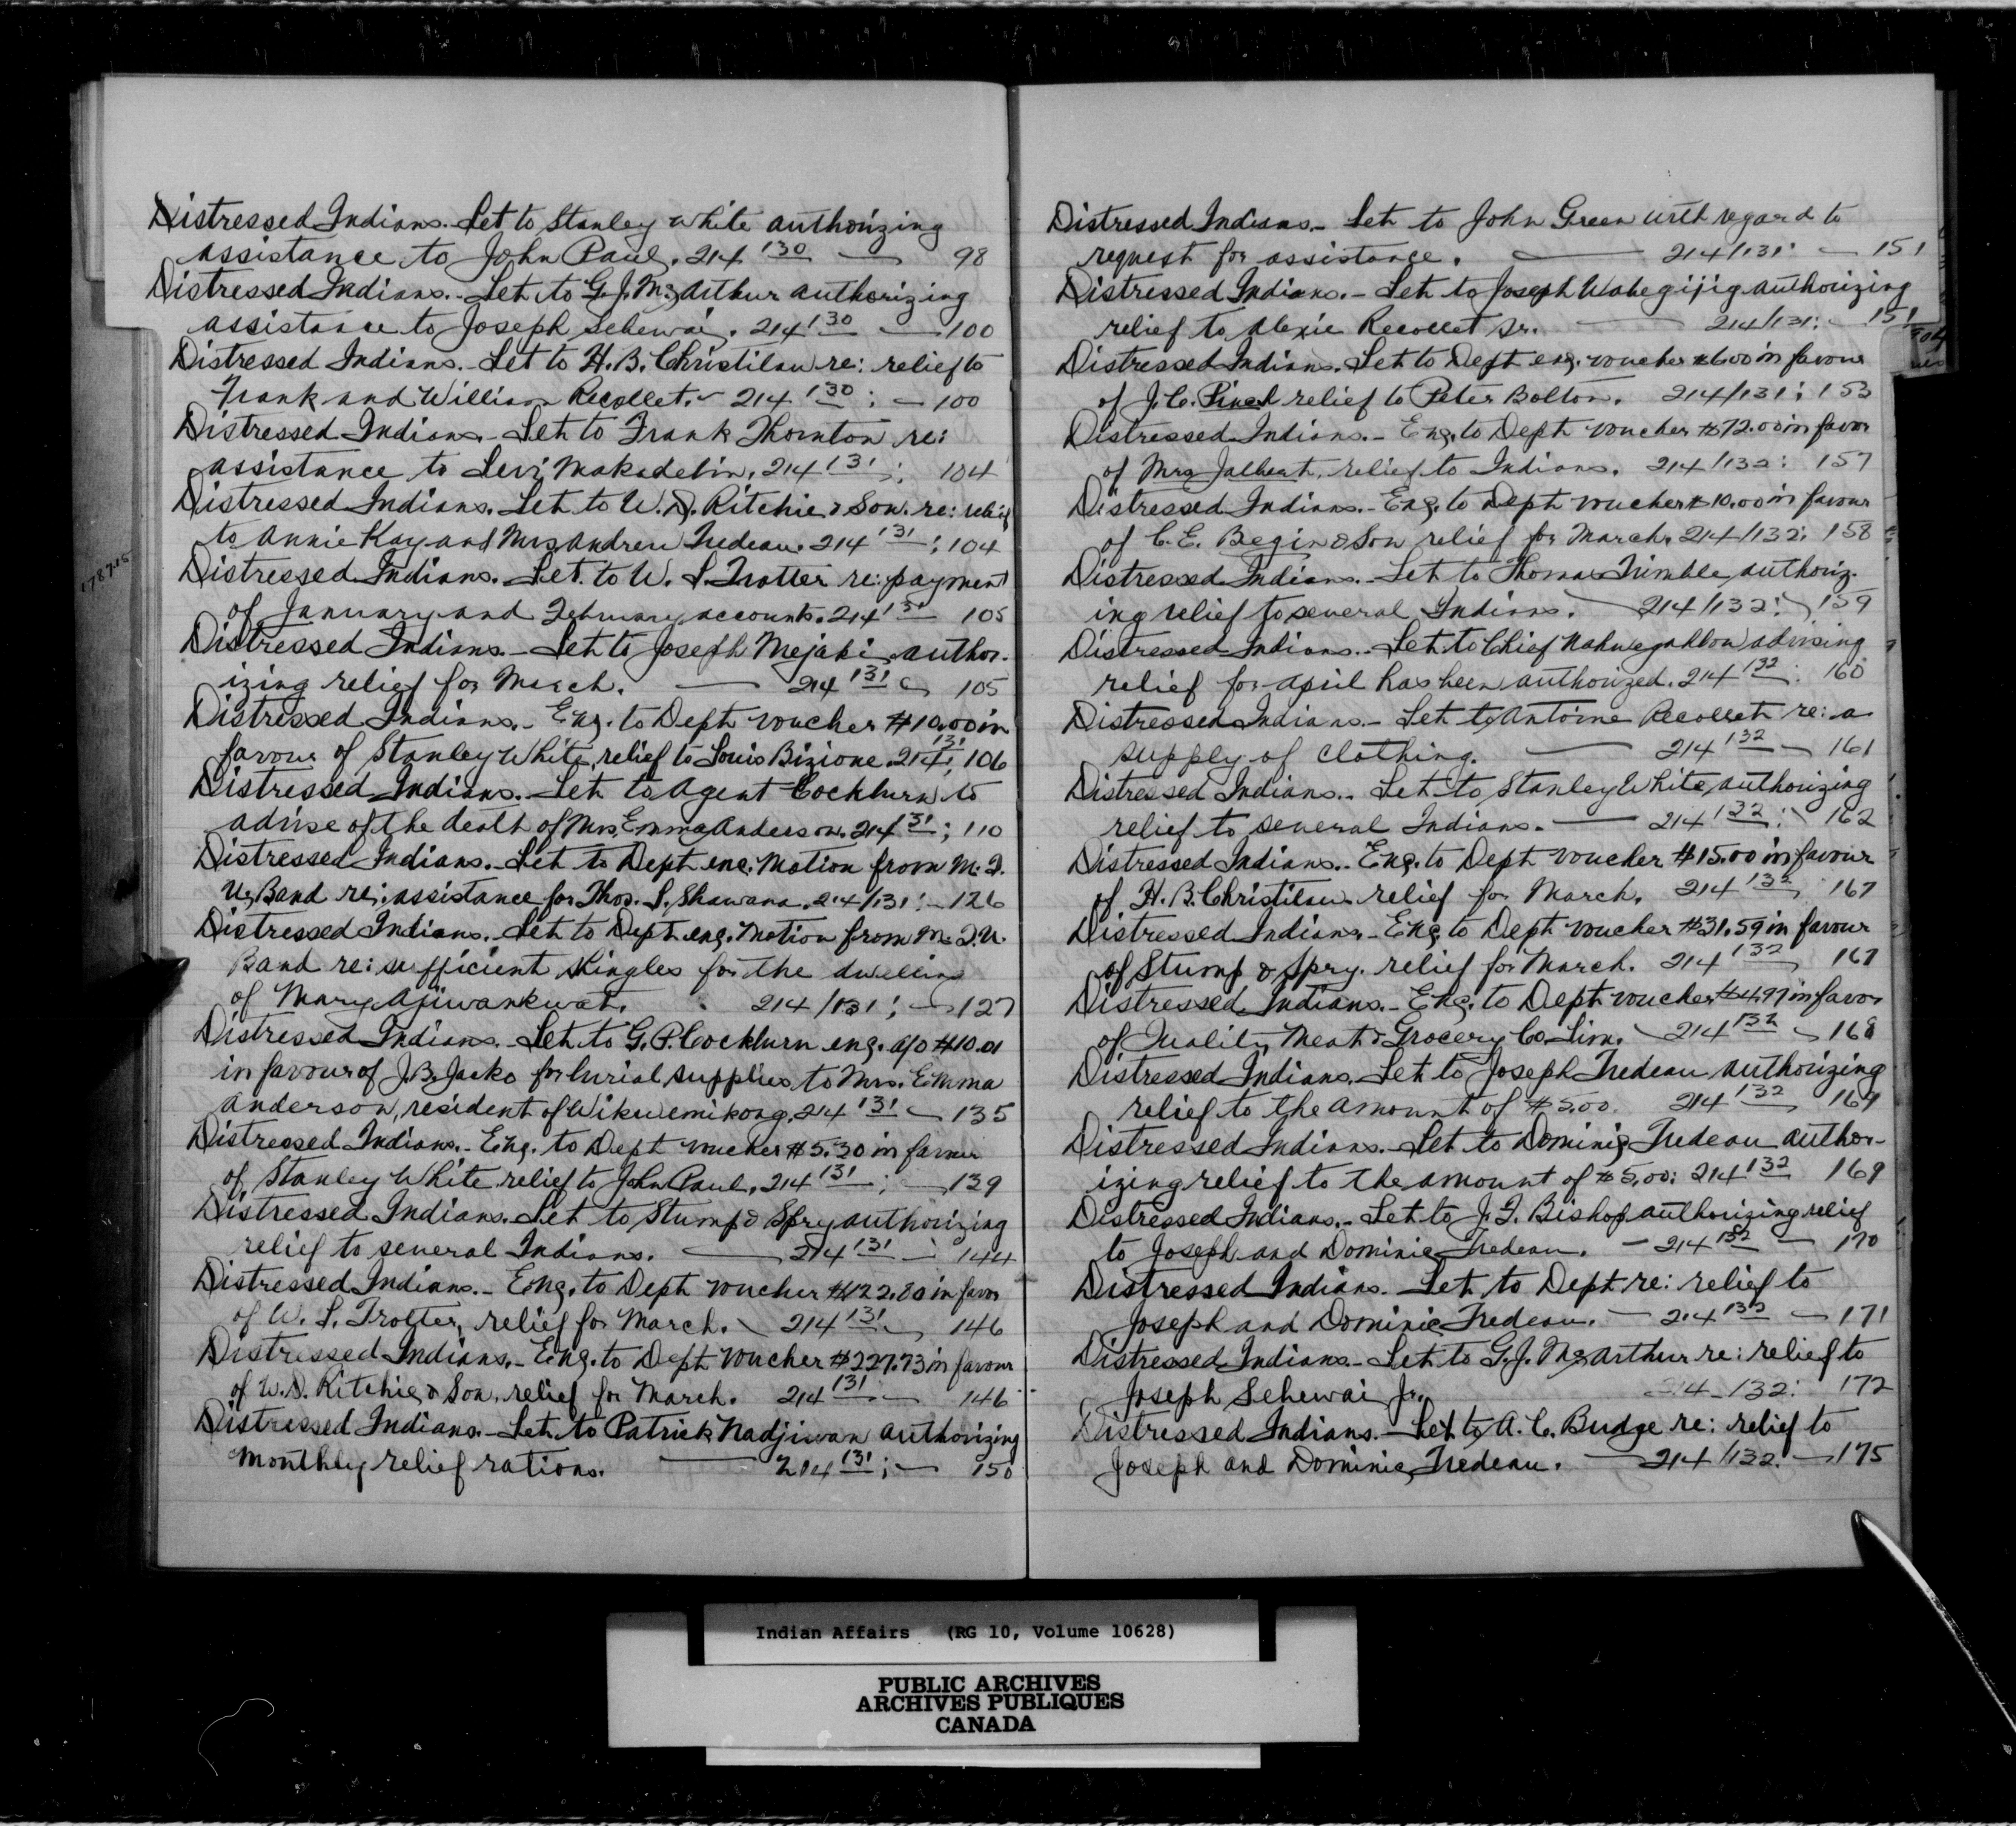 Distressed Indians. Let to Stanley White authorizing
assistance to John Paul. 214 130 — 98
Distressed Indians. - Let to G. J. McArthur authorizing
assistance to Joseph Sehewai. 214 130 — 100
Distressed Indians. - Let to H. B. Christilaw re: relief to
Frank and William Recollet. - 214 130 : — 100
Distressed Indians. - Let to Frank Thornton re:
assistance to Levi Makadebin. 214 131 ; 104
Distressed Indians. Let to W. D. Ritchie & Son. re: relief
to Annie Kay and Mrs Andrew Trudeau. 214 131 ; 104
Distressed Indians. Let. to W. S. Trotter re: payment
of January and February accounts. 214 131 105
Distressed Indians. - Let to Joseph Mejaki author-
izing relief for March. — 214 131 105
Distressed Indians. - Eng. to Dept voucher $10.00 in
favour of Stanley White, relief to Louis Bizione. 214 131 ; 106
Distressed Indians. - Let to Agent Cockburn to
advise of the death of Mrs. Emma Anderson. 214 131 ; 110
Distressed Indians. - Let to Dept enc. Motion from M. I.
U. Band re: assistance for Thos. S. Shawana. 214/131 : - 126
Distressed Indians. - Let to Dept enc. Motion from M. I. U.
Band re: sufficient shingles for the dwelling
of Mary Ajiwankwat. 214/131 ; — 127
Distressed Indians. - Let to G. P. Cockburn enc. a/o $10.01
in favour of J. B. Jacko for burial supplies to Mrs. Emma
Anderson, resident of Wikwemikong. 214 131 — 135
Distressed Indians. - Eng. to Dept voucher $5.30 in favour
of Stanley White relief to John Paul. 214 131 ; — 139
Distressed Indians. Let to Stump & Spry authorizing
relief to several Indians. — 214 131 — 144
Distressed Indians. - Eng. to Dept voucher $122.80 in favor
of W. S. Trotter, relief for March. - 214 131 146
Distressed Indians. - Eng. to Dept voucher $227.73 in favour
of W. D. Ritchie & Son, relief for March. 214 131 — 146
Distressed Indians. - Let to Patrick Nadjiwan authorizing
monthly relief rations. — 214 131 ; — 150
Distressed Indians. - Let to John Green with regard to
request for assistance. — 214/131 : — 151
Distressed Indians. - Let to Joseph Wabegijig authorizing
relief to Alexie Recollet Sr. — 214/131 : — 151
Distressed Indians. Let to Dept enc. voucher $6.00 in favour
of J. C. Pinel relief to Peter Bolton. 214/131 ; 153
Distressed Indians. - Eng. to Dept voucher $72.00 in favor
of Mrs Jalbert, relief to Indians. 214/132 : 157
Distressed Indians. - Eng. to Dept voucher $10.00 in favour
of C. E. Begin & Son relief for March. 214/132 : 158
Distressed Indians. - Let to Thomas Trimble, authoriz-
ing relief to several Indians. — 214/132 : 159
Distressed Indians. - Let to Chief advising
relief for April has been authorized. 214 132 : 160
Distressed Indians. - Let to Antoine Recollet re: a
supply of clothing. — 214 132 — 161
Distressed Indians. - Let to Stanley White, authorizing
relief to several Indians. — 214 132 : 162
Distressed Indians. - Eng. to Dept voucher $15.00 in favour
of H. B. Christilaw relief for March. 214 132 167
Distressed Indians. - Eng. to Dept voucher $31.59 in favour
of Stump & Spry. relief for March. 214 132 167
Distressed Indians. - Eng. to Dept voucher $4.97 in favor
of Quality Meat & Grocery Co. Lim. - 214 132 168
Distressed Indians. Let to Joseph Trudeau authorizing
relief to the amount of $5.00. 214 132 169
Distressed Indians. Let to Dominic Trudeau author-
izing relief to the amount of $5.00 : 214 132 169
Distressed Indians. - Let to J. I. Bishop authorizing relief
to Joseph and Dominic Trudeau. - 214 132 — 170
Distressed Indians. - Let. to Dept re: relief to
Joseph and Dominic Trudeau. - 214 132 — 171
Distressed Indians - Let to G. J. McArthur re: relief to
Joseph Sehewai Jr. 214-132 : 172
Distressed Indians. - Let to A. C. Budge re: relief to
Joseph and Dominic Trudeau. — 214/132 : — 175
Indian Affairs (RG 10, Volume 10628)
PUBLIC ARCHIVES
ARCHIVES PUBLIQUES
CANADA